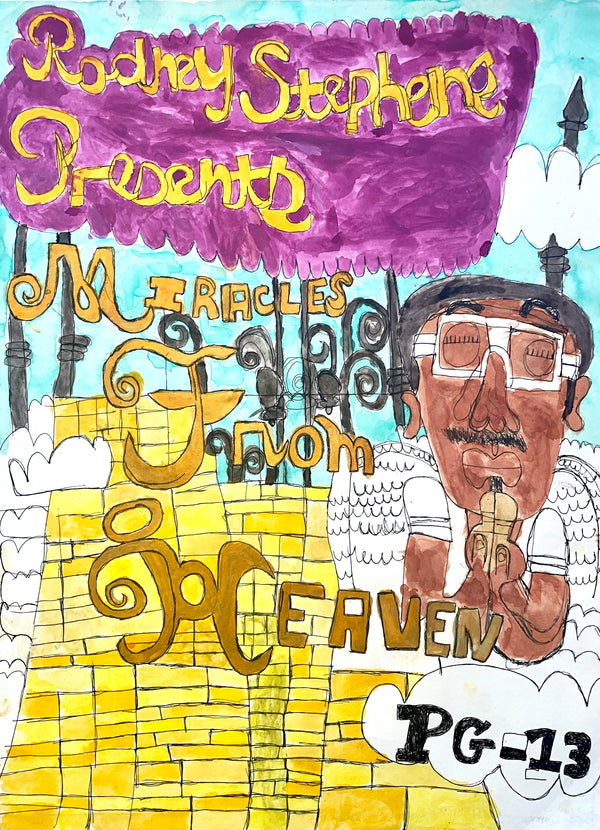 Rodney Stephens
Presents
MIRACLES
From
HEAVEN
PG-13